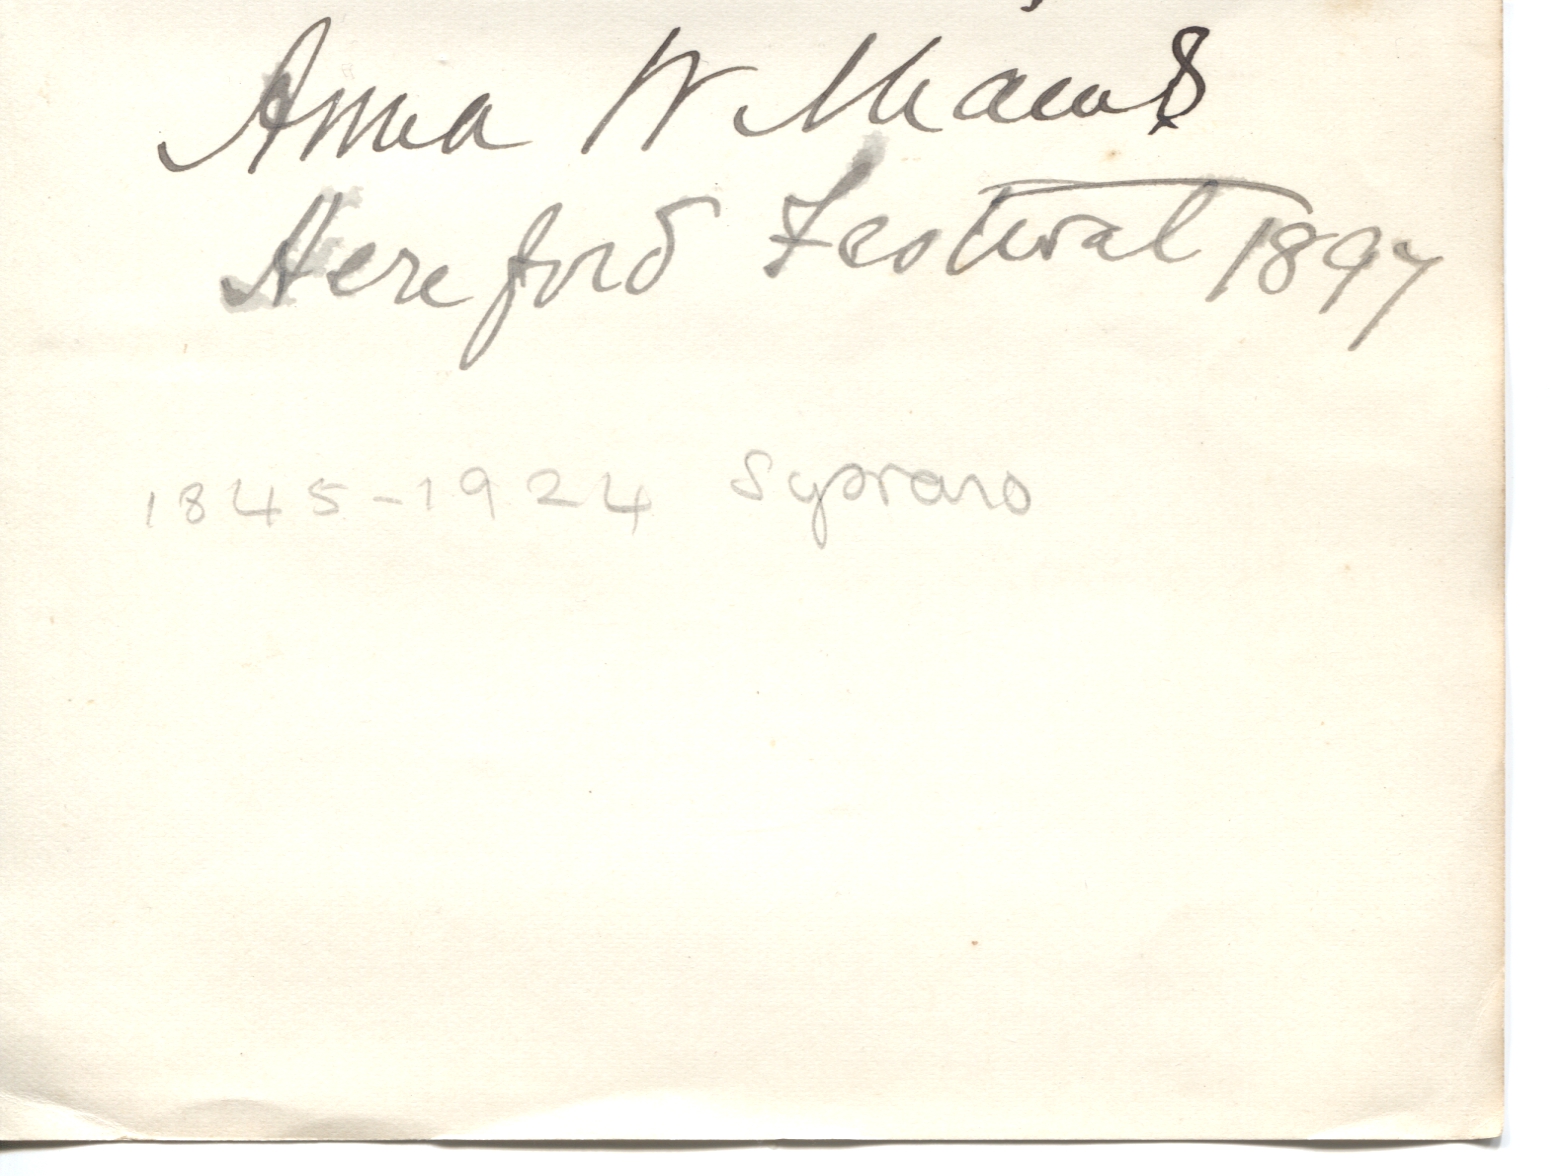 Anna Williams
Hereford Festival 1897
1845-1924 Soprano